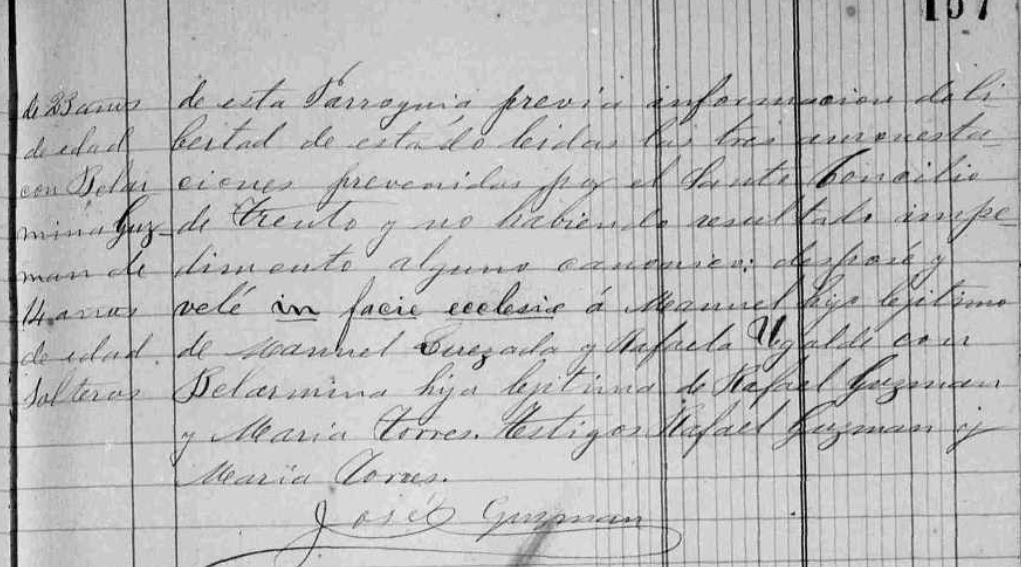 157
de 23 años
de edad
con Belar
mina Guz-
man de
14 anos
de edad
Solteros
de esta Parroquia previa informacion de li
bertad de estado leidas las tres amonesta-
ciones prevenidas por el Santo Concilio
de Trento y no habiendo resultado impe-
dimento alguno canonico; desposé y
velé in facie ecclesie á Manuel hijo legitimo
de Manuel Quezada y Rafaela Ugalde con
Belarmina hija legitima de Rafael Guzman
y Maria Torres. Testigos Rafael Guzman y
Maria Torres.
José Guzman